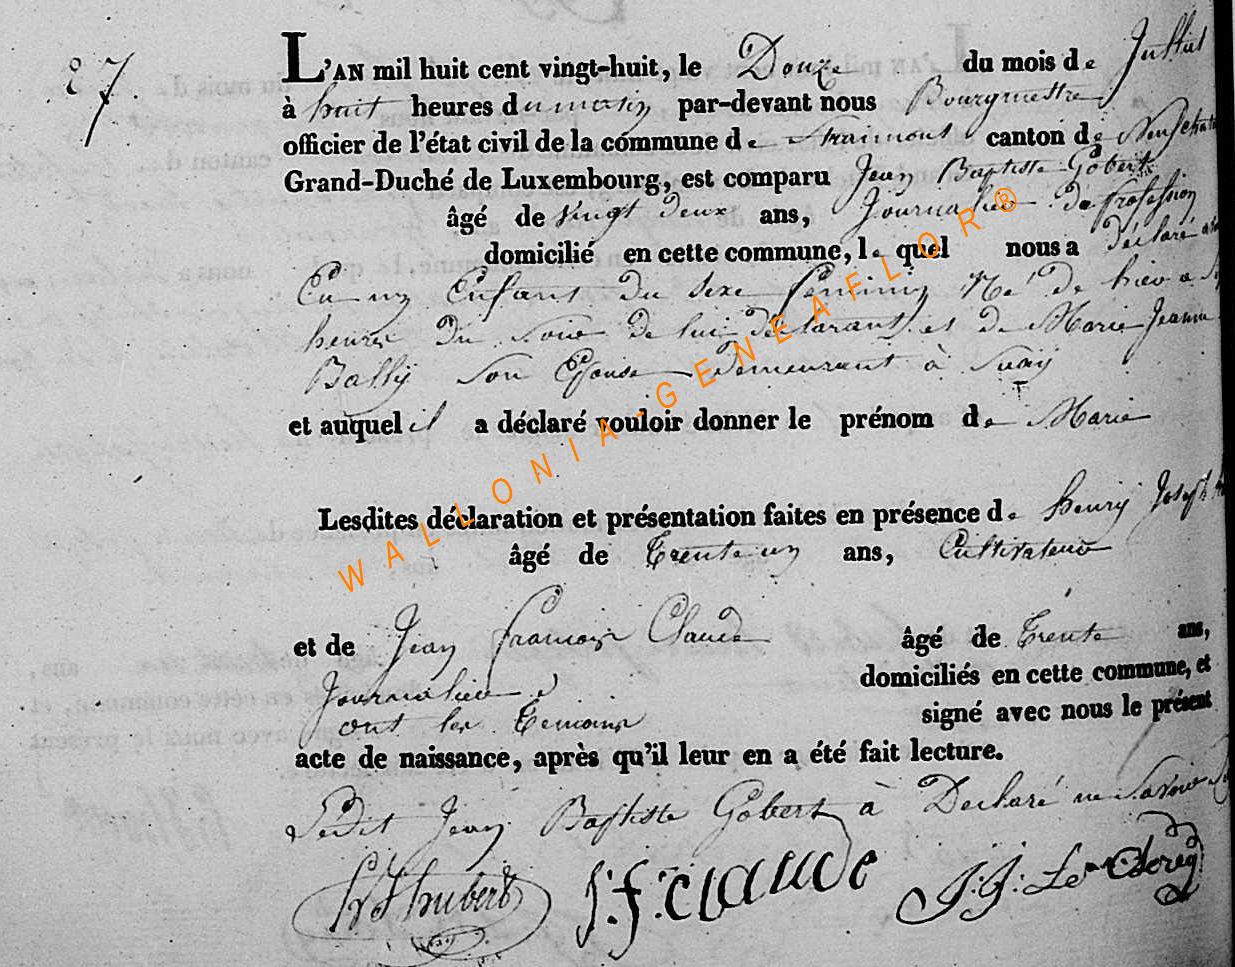 27.
L'AN mil huit cent vingt-huit, le Douze du mois de Juillet
à huit heures du matin par-devant nous Bourgmestre
officier de l'état civil de la commune de Straimont canton de
Grand-Duché de Luxembourg, est comparu Jean Baptiste Gobert
âgé de vingt deux ans, Journalier de profession
domicilié en cette commune, le quel nous a déclaré
Enfant du sexe feminin Né de hier a
heures du soir de lui declarant et de Marie Jeanne
Bally son Epouse demeurant à Suxy
et auquel il a déclaré vouloir donner le prénom de Marie
Lesdites déclaration et présentation faites en présence de henry Joseph
âgé de Trente un ans, Cultivateur
et de Jean françois Claude âgé de Trente ans,
Journalier domiciliés en cette commune, et
ont les Temoins signé avec nous le présent
acte de naissance, après qu'il leur en a été fait lecture.
Ledit Jean Baptiste Gobert à Declaré ne Savoir
hubert J:f:claude J:J: Le Clercq
WALLONIA-GENEAFLOR®